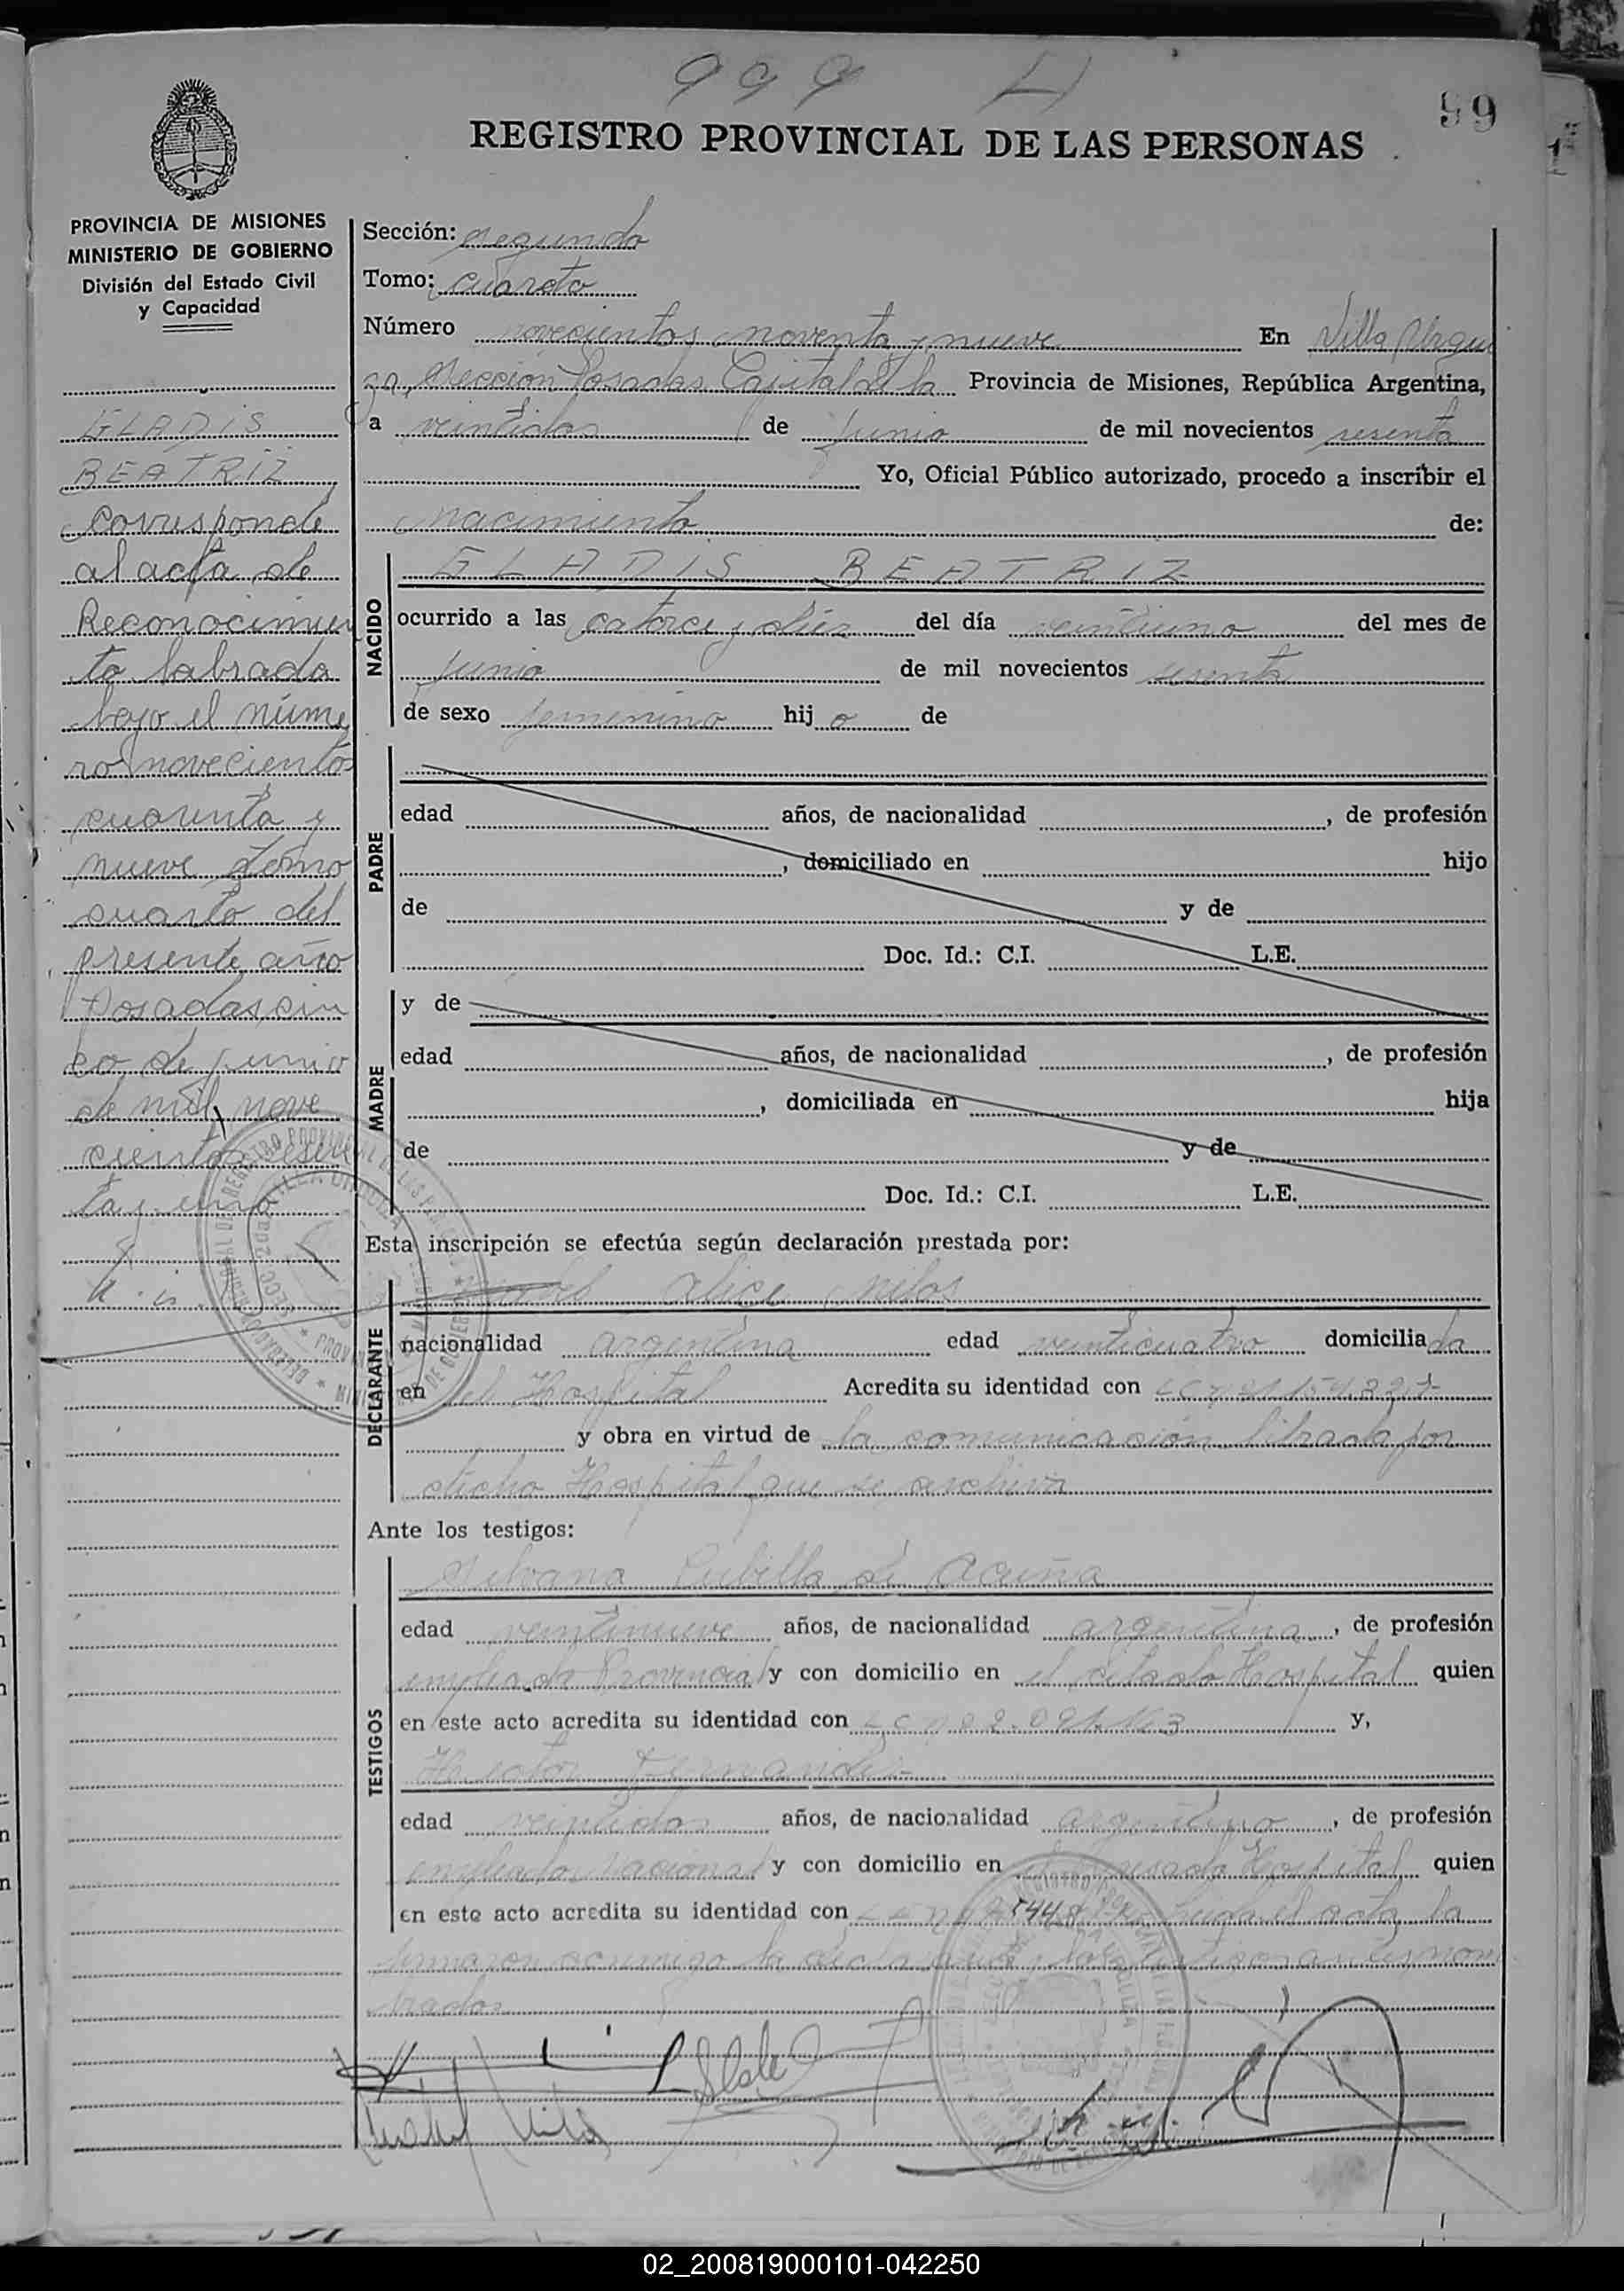 999
99
REGISTRO PROVINCIAL DE LAS PERSONAS
PROVINCIA DE MISIONES
MINISTERIO DE GOBIERNO
División del Estado Civil
y Capacidad
GLADIS
BEATRIZ
Corresponde
al acta de
Reconocimien
to labrada
bajo el núme
ro novecientos
cuarenta y
nueve tomo
cuarto del
presente año
Posadas, cin
co de junio
de mil nove
cientos sesen
ta y uno
Sección: segunda
Tomo: cuarto
Número novecientos noventa y nueve En Villa Urqui
za, Sección Posadas Capital de la Provincia de Misiones, República Argentina,
a veintidos de junio de mil novecientos sesenta
Yo, Oficial Público autorizado, procedo a inscribir el
nacimiento de:
NACIDO
GLADIS BEATRIZ
ocurrido a las catorce y diez del día veintiuno del mes de
junio de mil novecientos sesenta
de sexo femenino hij a de
PADRE
edad años, de nacionalidad , de profesión
, domiciliado en hijo
de y de
Doc. Id.: C.I. L.E.
MADRE
y de
edad años, de nacionalidad , de profesión
, domiciliada en hija
de y de
Doc. Id.: C.I. L.E.
Esta inscripción se efectúa según declaración prestada por:
DECLARANTE
Alice
nacionalidad argentina edad veinticuatro domicilia da
en el Hospital Acredita su identidad con
y obra en virtud de la comunicación librada por
dicho Hospital que se archiva
Ante los testigos:
TESTIGOS
Silvana Cubilla de Acuña
edad veintinueve años, de nacionalidad argentina, de profesión
empleada Provincial y con domicilio en el citado Hospital quien
en este acto acredita su identidad con y,
Hector Fernandez
edad veintidos años, de nacionalidad argentino, de profesión
empleado nacional y con domicilio en el Hospital quien
en este acto acredita su identidad con Leida el acta la
firmaron conmigo la declarante y los testigos antes nom
brados
02_200819000101-042250